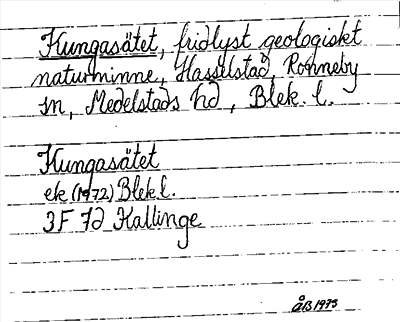 Kungasätet, fridlyst geologiskt
naturminne, Hasselstad, Ronneby
sn, Medelstads hd, Blek. l.
Kungasätet
ek (1972) Blek l.
3F 7d Kallinge
ÅB 1973